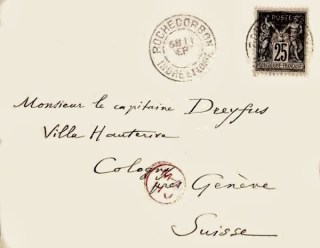 ROCHECORBON
INDRE ET LOIRE
POSTE
25
Monsieur le capitaine Dreyfus
Villa Hauterive
Cologny
près Genève
Suisse